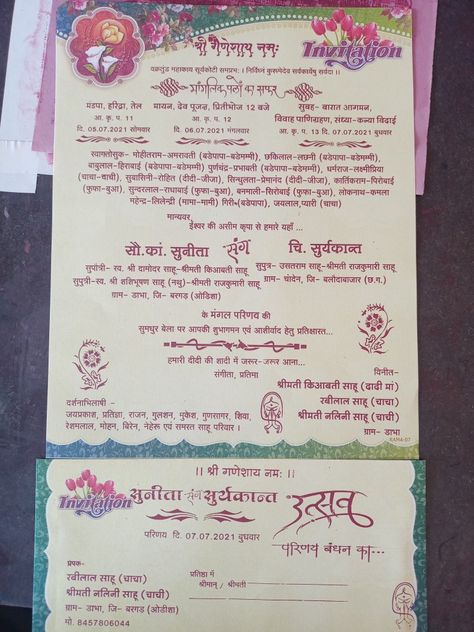 श्री गणेशाय नमः
Invitation
वक्रतुंड महाकाय सूर्यकोटी समप्रभः । निर्विघ्नं कुरूमेदेव सर्वकार्येषु सर्वदा ।।
मांगलिक पलों का सफर
मंडपा, हरिद्रा, तेल
आ. कृ. प. 11
दि. 05.07.2021 सोमवार
मायन, देव पूजन, प्रितीभोज 12 बजे
आ. कृ. प. 12
दि. 06.07.2021 मंगलवार
सुबह- बारात आगमन,
विवाह पाणिग्रहण, संध्या- कन्या बिदाई
आ. कृ. प. 13 दि. 07.07.2021 बुधवार
स्वागतोत्सुक- मोहीतराम-अमरावती (बडेपापा-बडेमम्मी), छकिलाल-लछनी (बडेपापा-बडेमम्मी),
बाबुलाल-हिराबाई (बडेपापा-बडेमम्मी) पुर्णचंद्र-प्रभाबती (बडेपापा-बडेमम्मी), धर्मराज-लक्ष्मीप्रिया
(चाचा-चाची), सुबासिनी-रोहित (दीदी-जीजा), सिन्धुलता-प्रेमानंद (दीदी-जीजा), कार्तिकराम-पिरोबाई
(फुफा-बुआ), सुन्दरलाल-राधाबाई (फुफा-बुआ), बनमाली-सिरोबाई (फुफा-बुआ), लोकनाथ-कमला
महेन्द्र-लिलेन्द्री (मामा-मामी) गिरी (बडेपापा), जयलाल,प्यारी (चाचा)
मान्यवर,
ईश्वर की असीम कृपा से हमारे यहाँ ...
सौ.कां. सुनीता
संग
चि. सुर्यकान्त
सुपोत्री- स्व. श्री दामोदर साहू-श्रीमती किआबती साहू
सुपुत्री-स्व. श्री शशिभूषण साहू (नथु)-श्रीमती राजकुमारी साहू
ग्राम- डाभा, जि- बरगड़ (ओडिशा)
सुपुत्र- उसतराम साहू-श्रीमती राजकुमारी साहू
ग्राम- चांदेन, जि- बलोदाबाजार (छ.ग.)
के मंगल परिणय की
सुमधुर बेला पर आपकी शुभागमन एवं आशीर्वाद हेतु प्रतिक्षारत...
हमारी दीदी की शादी में जरूर-जरूर आना...
संगीता, प्रतिमा
दर्शनाभिलाषी -
जयप्रकाश, प्रतिज्ञा, राजन, गुलशन, मुकेश, गुणसागर, शिवा,
रेशमलाल, मोहन, बिरेन, नेहेरू एवं समस्त साहू परिवार ।
विनीत-
श्रीमती किआबती साहू (दादी मां)
रबीलाल साहू (चाचा)
श्रीमती नलिनी साहू (चाची)
ग्राम- डाभा
।। श्री गणेशाय नमः ।।
Invitation
सुनीता संग सुर्यकान्त
उत्सव
परिणय बंधन का...
परिणय दि. 07.07.2021 बुधवार
प्रेषक-
रबीलाल साहू (चाचा)
श्रीमती नलिनी साहू (चाची)
ग्राम- डाभा, जि- बरगड़ (ओडिशा)
मो. 8457806044
प्रतिष्ठा में
श्रीमान् / श्रीमती